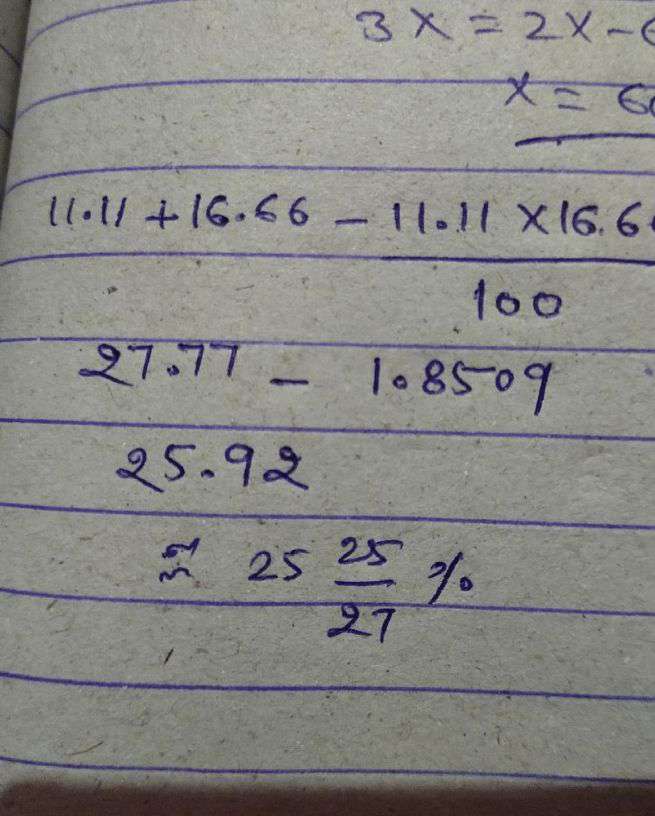 3x = 2x - 6
x = 60
11.11 + 16.66 - 11.11 × 16.66
100
27.77 - 1.8509
25.92
≈ 25 25/27 %